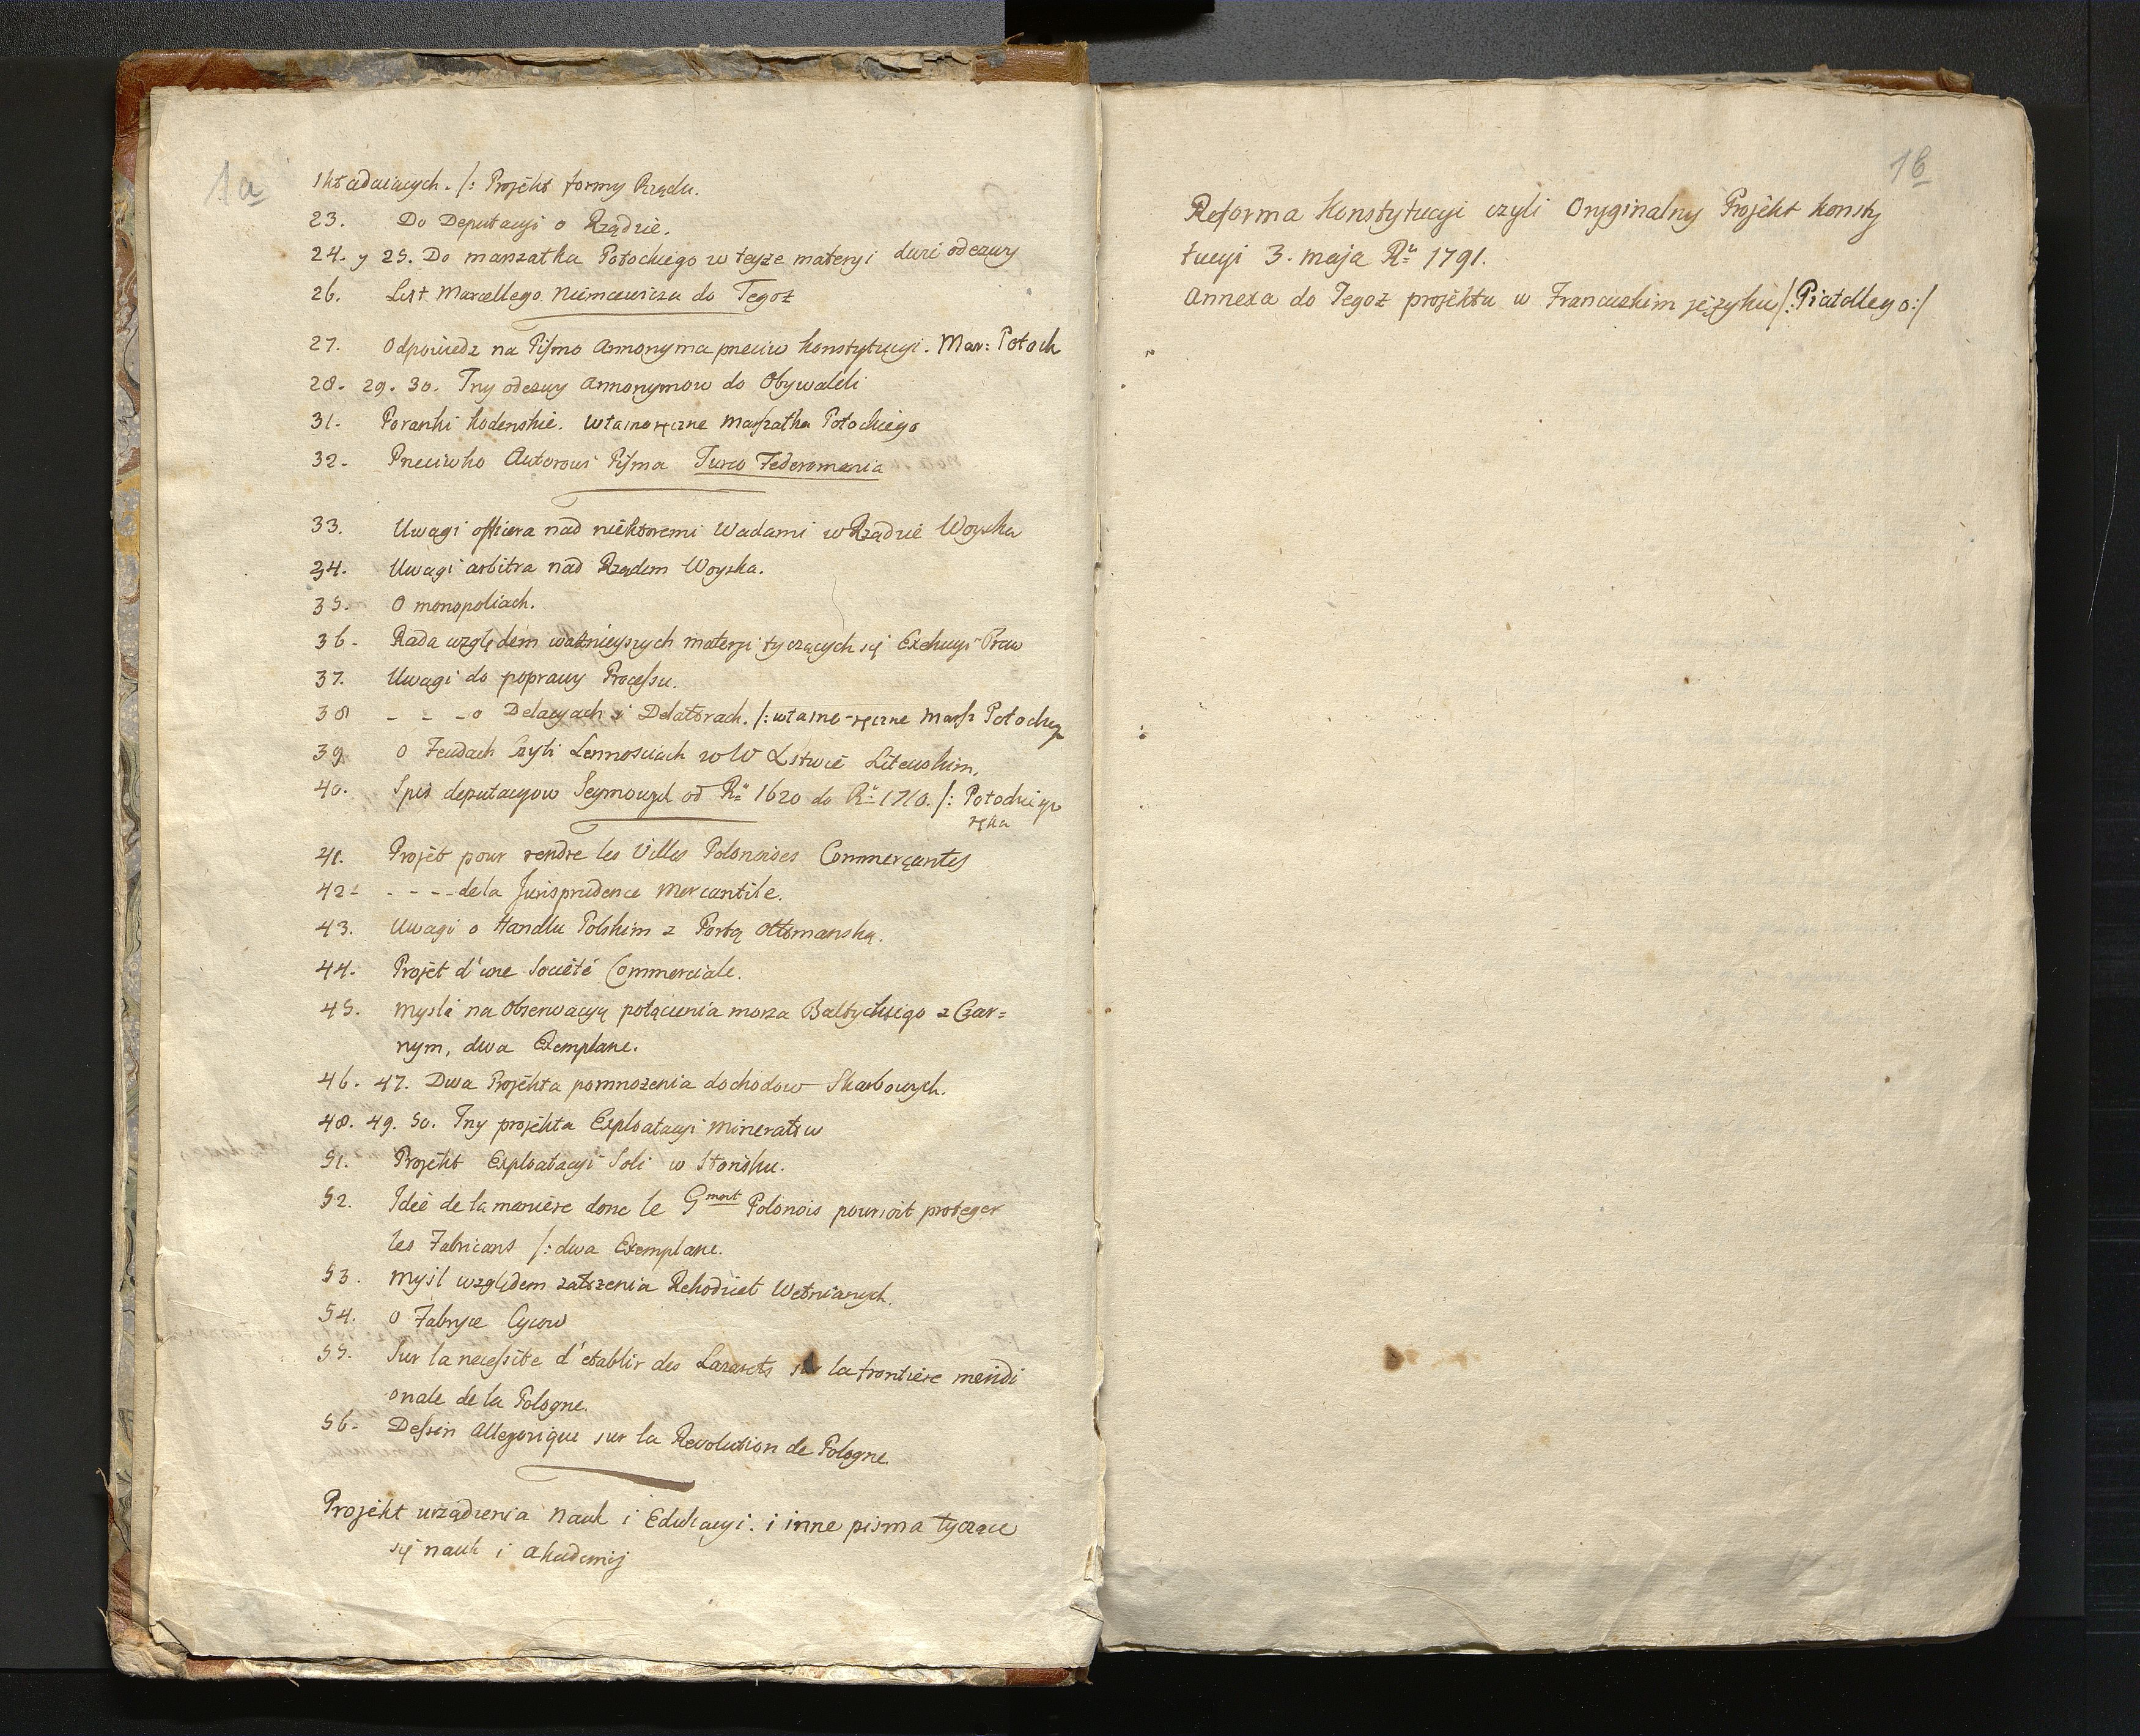 1a
składaiących. /: Projekt formy Rządu.
23. Do Deputacyi o Rządzie.
24. y 25. Do marszałka Potockiego w teyże materyi dwie odezwy
26. List Marcellego Niemcewicza do Tegoż
27. Odpowiedz na Pismo Annonyma przeciw Konstytucyi. Mar: Potock
28. 29. 30. Trzy odezwy Annonymow do Obywateli
31. Poranki Kodenskie. własnoręczne Marszałka Potockiego
32. Przeciwko Autorowi Pisma Turco Federomania
33. Uwagi officera nad niektoremi Wadami w Rządzie Woyska
34. Uwagi arbitra nad Rządem Woyska.
35. O monopoliach.
36. Rada względem ważnieyszych materyi tyczących się Exekucyi Praw
37. Uwagi do poprawy Processu.
38 - - - o Delacyach i Delatorach. /: własno-ręczne Marsz Potockieg
39. O Feudach Czyli Lennościach w W Xstwie Litewskim.
40. Spis deputacyow Seymowych od Ru 1620 do Ru 1710. /: Potockiego
ręka
41. Projêt pour rendre les Villes Polonoises Commerçantes
42 - - - - de la Jurisprudence Mercantile.
43. Uwagi o Handlu Polskim z Portą Ottomanską.
44. Projêt d'une Societé Commerciale.
45. Mysli na Obserwacyą połączenia morza Baltyckiego z Czar=
nym, dwa Exemplarze.
46. 47. Dwa Projekta pomnożenia dochodow Skarbowych.
48. 49. 50. Trzy projekta Exploatacyi Minerałow
51. Projekt Exploatacyi Soli w Słonsku.
52. Idée de la manière donc le Gment Polonois pourroit proteger
les Fabricans /: dwa Exemplarze.
53. Mysl względem założenia Rekodzieł Wełnianych.
54. O Fabryce Cycow
55. Sur la necessite d'etablir des Lazarets sur la frontiere meridi
onale de la Pologne.
56. Dessin Allegorique sur la Revolution de Pologne
Projekt urządzenia Nauk i Edukacyi. i inne pisma tyczące
się nauk i akademij
1b
Reforma Konstytucyi czyli Oryginalny Projekt Konsty
tucyi 3. maja Ru 1791.
Annexa do Tegoż projektu w Francuskim języku /: Piatollego :/